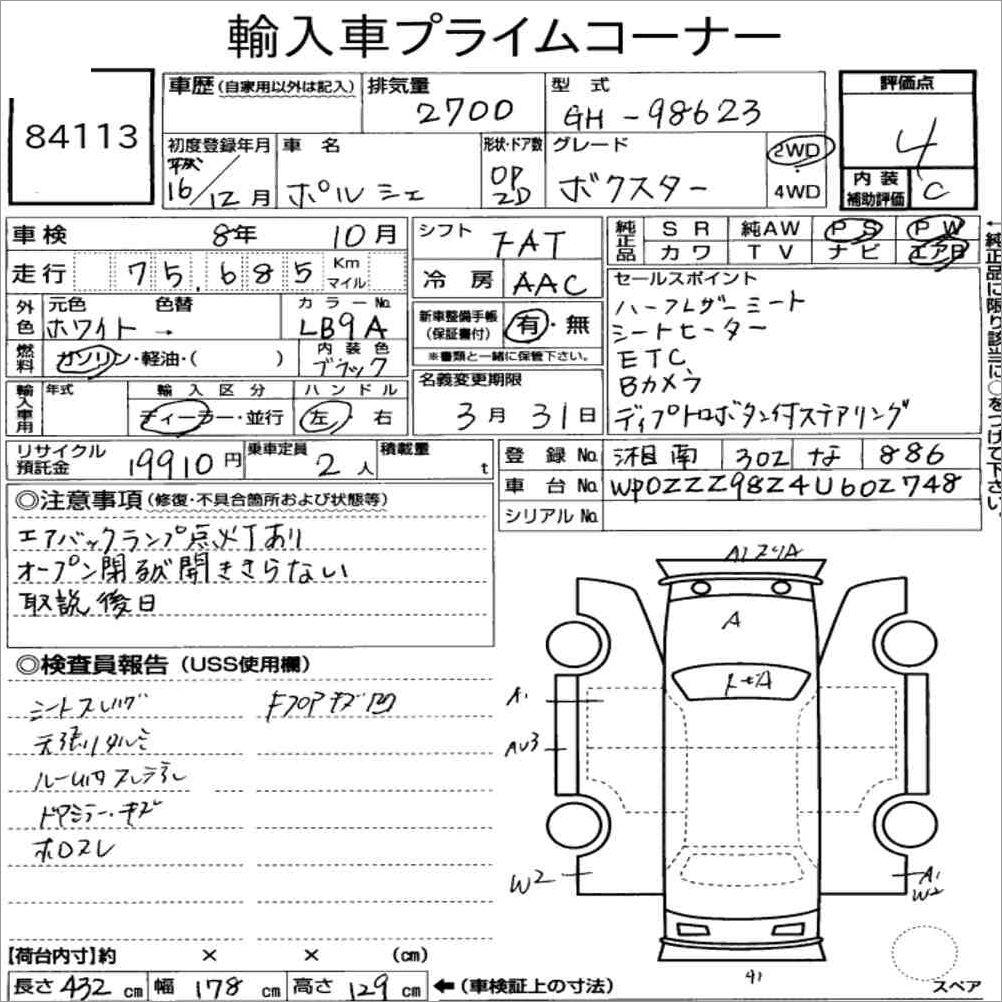 輸入車プライムコーナー
84113
車歴 (自家用以外は記入) 排気量 2700 型式 GH-98623 評価点 4
初度登録年月 平成 16/12月 車名 ポルシェ 形状・ドア数 OP 2D グレード ボクスター 2WD・4WD 内装補助評価 C
車検 8年 10月 シフト FAT 純正品 SR 純AW PS PW
カワ TV ナビ エアB
走行 75,685 Km マイル 冷房 AAC
セールスポイント
外色 元色 ホワイト → 色替 カラーNo. LB9A
新車整備手帳(保証書付) 有・無
※書類と一緒に保管下さい。
燃料 ガソリン・軽油・( ) 内装色 ブラック
ハーフレザーシート
シートヒーター
ETC
Bカメラ
ディプトロボタン付ステアリング
輸入車用 年式 輸入区分 ディーラー・並行 ハンドル 左 右
名義変更期限 3月 31日
←純正品に限り該当に○をつけて下さい。
リサイクル預託金 19910円 乗車定員 2人 積載量 t
登録No. 湘南 302 な 886
車台No. WP0ZZZ98Z4U602748
シリアルNo.
◎注意事項 (修復・不具合箇所および状態等)
エアバックランプ点灯あり
オープン閉るが開ききらない
取説後日
◎検査員報告 (USS使用欄)
シートスレ
天張りタルミ
ルーム内
ドアミラー・キズ
ホロスレ
FフロアキズA
A1 スリA
A
トビA
A1
AU3
W2
A1
W2
41
スペア
【荷台内寸】約 × × (cm)
長さ 432 cm 幅 178 cm 高さ 129 cm ←(車検証上の寸法)